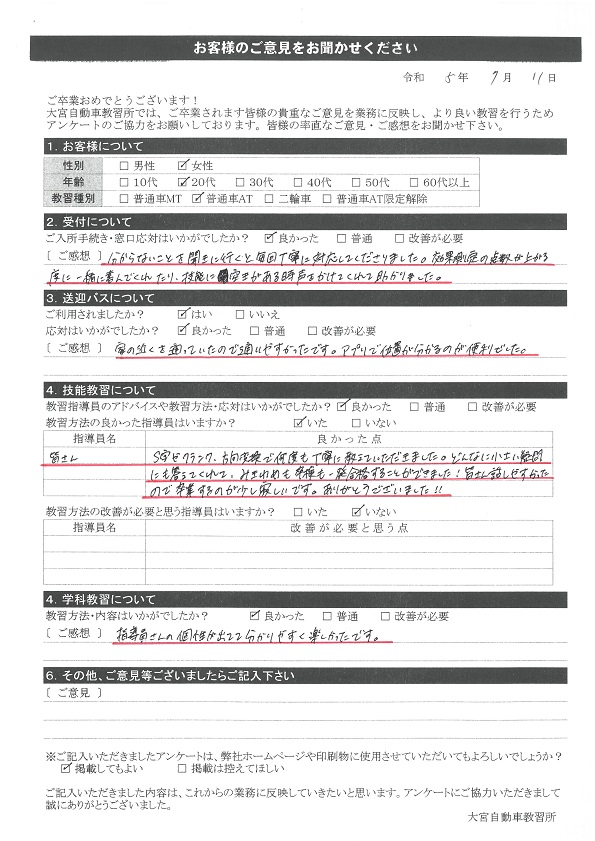 お客様のご意見をお聞かせください
令和 5年 9月 11日
ご卒業おめでとうございます!
大宮自動車教習所では、ご卒業されます皆様の貴重なご意見を業務に反映し、より良い教習を行うため
アンケートのご協力をお願いしております。皆様の率直なご意見・ご感想をお聞かせ下さい。
1. お客様について
性別 □ 男性 ☑ 女性
年齢 □ 10代 ☑ 20代 □ 30代 □ 40代 □ 50代 □ 60代以上
教習種別 □ 普通車MT ☑ 普通車AT □ 二輪車 □ 普通車AT限定解除
2. 受付について
ご入所手続き・窓口応対はいかがでしたか? ☑ 良かった □ 普通 □ 改善が必要
[ ご感想 ] 分からないことを聞きに行くと毎回丁寧に対応してくださりました。効果測定の点数が上がる
度に一緒に喜んでくれたり、技能に不安がある時声をかけてくれて助かりました。
3. 送迎バスについて
ご利用されましたか? ☑ はい □ いいえ
応対はいかがでしたか? ☑ 良かった □ 普通 □ 改善が必要
[ ご感想 ] 家の近くを通っていたので通いやすかったです。アプリで位置が分かるのが便利でした。
4. 技能教習について
教習指導員のアドバイスや教習方法・応対はいかがでしたか? ☑ 良かった □ 普通 □ 改善が必要
教習方法の良かった指導員はいますか? ☑ いた □ いない
指導員名 良かった点
皆さん S字とクランク、方向変換で何度も丁寧に教えていただきました。どんなに小さい疑問
にも答えてくれて、みきわめも卒検も一発合格することができました!皆さん話しやすかった
ので卒業するのが少し寂しいです。ありがとうございました!!
教習方法の改善が必要と思う指導員はいますか? □ いた ☑ いない
指導員名 改善が必要と思う点
4. 学科教習について
教習方法・内容はいかがでしたか? ☑ 良かった □ 普通 □ 改善が必要
[ ご感想 ] 指導員さんの個性が出てて分かりやすく楽しかったです。
6. その他、ご意見等ございましたらご記入下さい
[ ご意見 ]
※ご記入いただきましたアンケートは、弊社ホームページや印刷物に使用させていただいてもよろしいでしょうか?
☑ 掲載してもよい □ 掲載は控えてほしい
ご記入いただきました内容は、これからの業務に反映していきたいと思います。アンケートにご協力いただきまして
誠にありがとうございました。
大宮自動車教習所